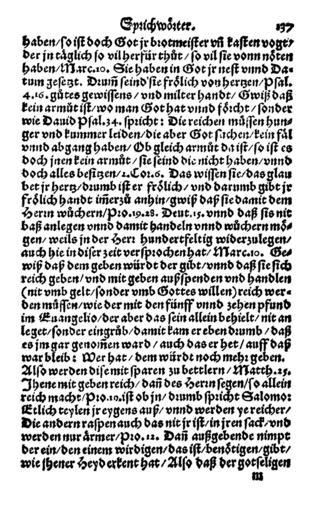 Sprichwörter. 137
haben/so ist doch Got jr brotmeister vñ kasten vogt/
der jn täglich so vil herfür thůt/so vil sie vonn nöten
haben/Marc.10. Sie haben in Got jr nest vnd Da-
tum gesetzt. Drumb seind sie frölich von hertzen/Psal.
4.16. gůtes gewissens/vnd milter handt/Gwiß daß
kein armůt ist/wo man Got hat vnnd förcht/sonder
wie Dauid Psal.34. spricht: Die reichen müssen hun-
ger vnd kummer leiden/die aber Got sůchen/kein fäl
vnnd abgang haben/Ob gleich armůt da ist/so ist es
doch jnen kein armůt/sie seind die nicht haben/vnnd
doch alles besitzen/2.Cor.6. Das wissen sie/das glau
bet jr hertz/drumb ist er frölich/vnd darumb gibt jr
frölich handt imerzů anhin/gwiß daß sie damit dem
Herrn wůchern/Pro.19.28. Deut.15. vnnd daß sis nit
baß anlegen vnnd damit handeln vnnd wůchern mö-
gen/weils in der Herr hundertfeltig widerzulegen/
auch hie in diser zeit versprochen hat/Marc.10. Ge-
wiß daß dem geben würdt der gibt/vnnd daß sie sich
reich geben/vnd mit geben außspenden vnd handlen
(nit vmb gelt/sonder vmb Gottes willen) reich wer-
den müssen/wie der mit den fünff vnnd zehen pfund
im Euangelio/der aber das sein allein behielt/nit an
leget/sonder eingrůb/damit kam er eben drumb/daß
es jm gar genommen ward/auch das er het/auff daß
war bleib: Wer hat/dem würdt noch mehr geben.
Also werden dise mit sparen zu bettlern/Matth.25.
Jhene mit geben reich/dañ des Herrn segen/so allein
reich macht/Pro.10. ist ob jn/drumb spricht Salomo:
Etlich teylen jr eygens auß/vnnd werden ye reicher/
Die andern raspen auch das nit jr ist/in jren sack/vnd
werden nur ärmer/Pro.12. Dañ außgebende nimpt
der ein/den einem wirdigen/das ist/benötigen/gibt/
wie jhener Heyd erkent hat/Also daß der gotseligen
m